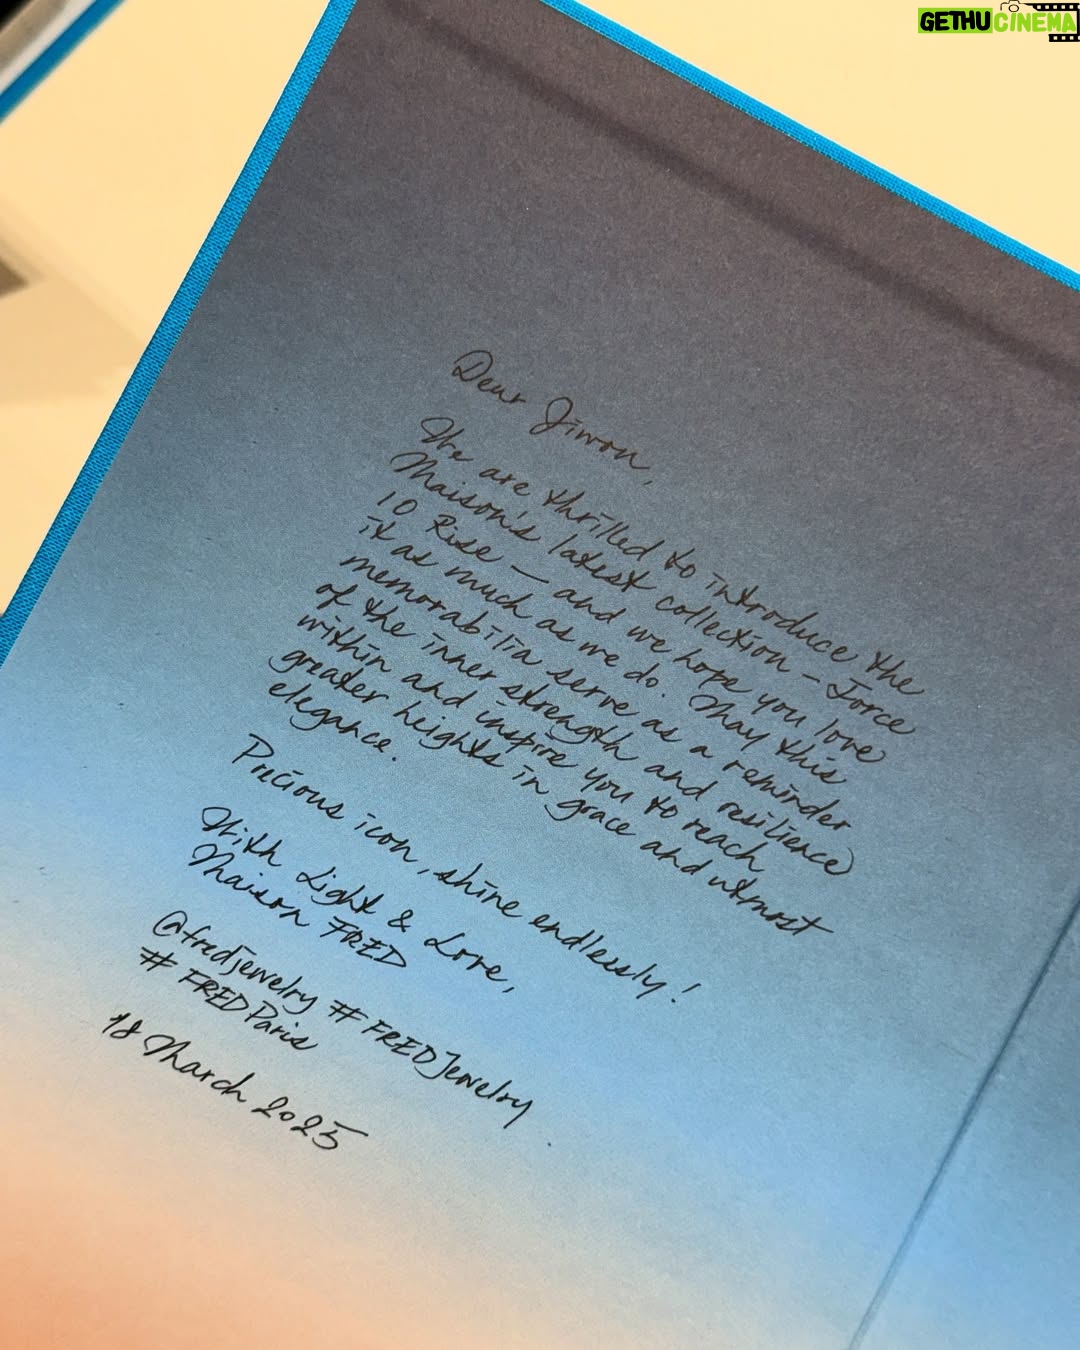 GETHUCINEMA
Dear Jiwon,
We are thrilled to introduce the
Maison's latest collection - Force
10 Rise - and we hope you love
it as much as we do. May this
memorabilia serve as a reminder
of the inner strength and resilience
within and inspire you to reach
greater heights in grace and utmost
elegance.
Precious icon, shine endlessly!
With Light & Love,
Maison FRED
@fredjewelry #FREDJewelry
#FREDParis
18 March 2025